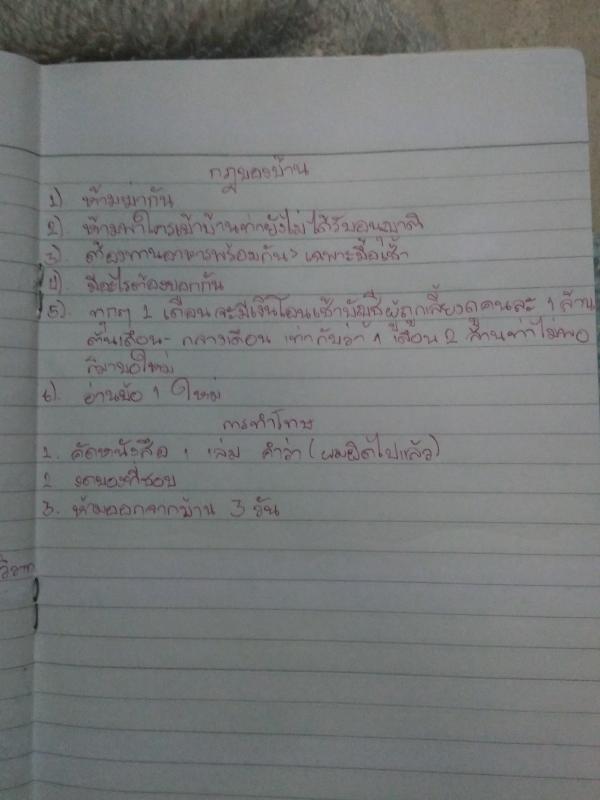 กฎของบ้าน
1). ห้ามฆ่ากัน
2). ห้ามพาใครเข้าบ้านถ้ายังไม่ได้รับอนุญาติ
3) ต้องทานอาหารพร้อมกัน> เฉพาะมื้อเช้า
4) มีอะไรต้องบอกกัน
5). ทุกๆ 1 เดือนจะมีเงินโอนเข้าบัญชีผู้ถูกเลี้ยงดูคนละ 1 ล้าน
ต้นเดือน- กลางเดือน เท่ากับว่า 1 เดือน 2 ล้านถ้าไม่พอ
ก็มาขอใหม่
6). อ่านข้อ 1 ใหม่
การทำโทษ
1. คัดหนังสือ 1 เล่ม คำว่า (ผมผิดไปแล้ว)
2 งดของที่ชอบ
3. ห้ามออกจากบ้าน 3 วัน